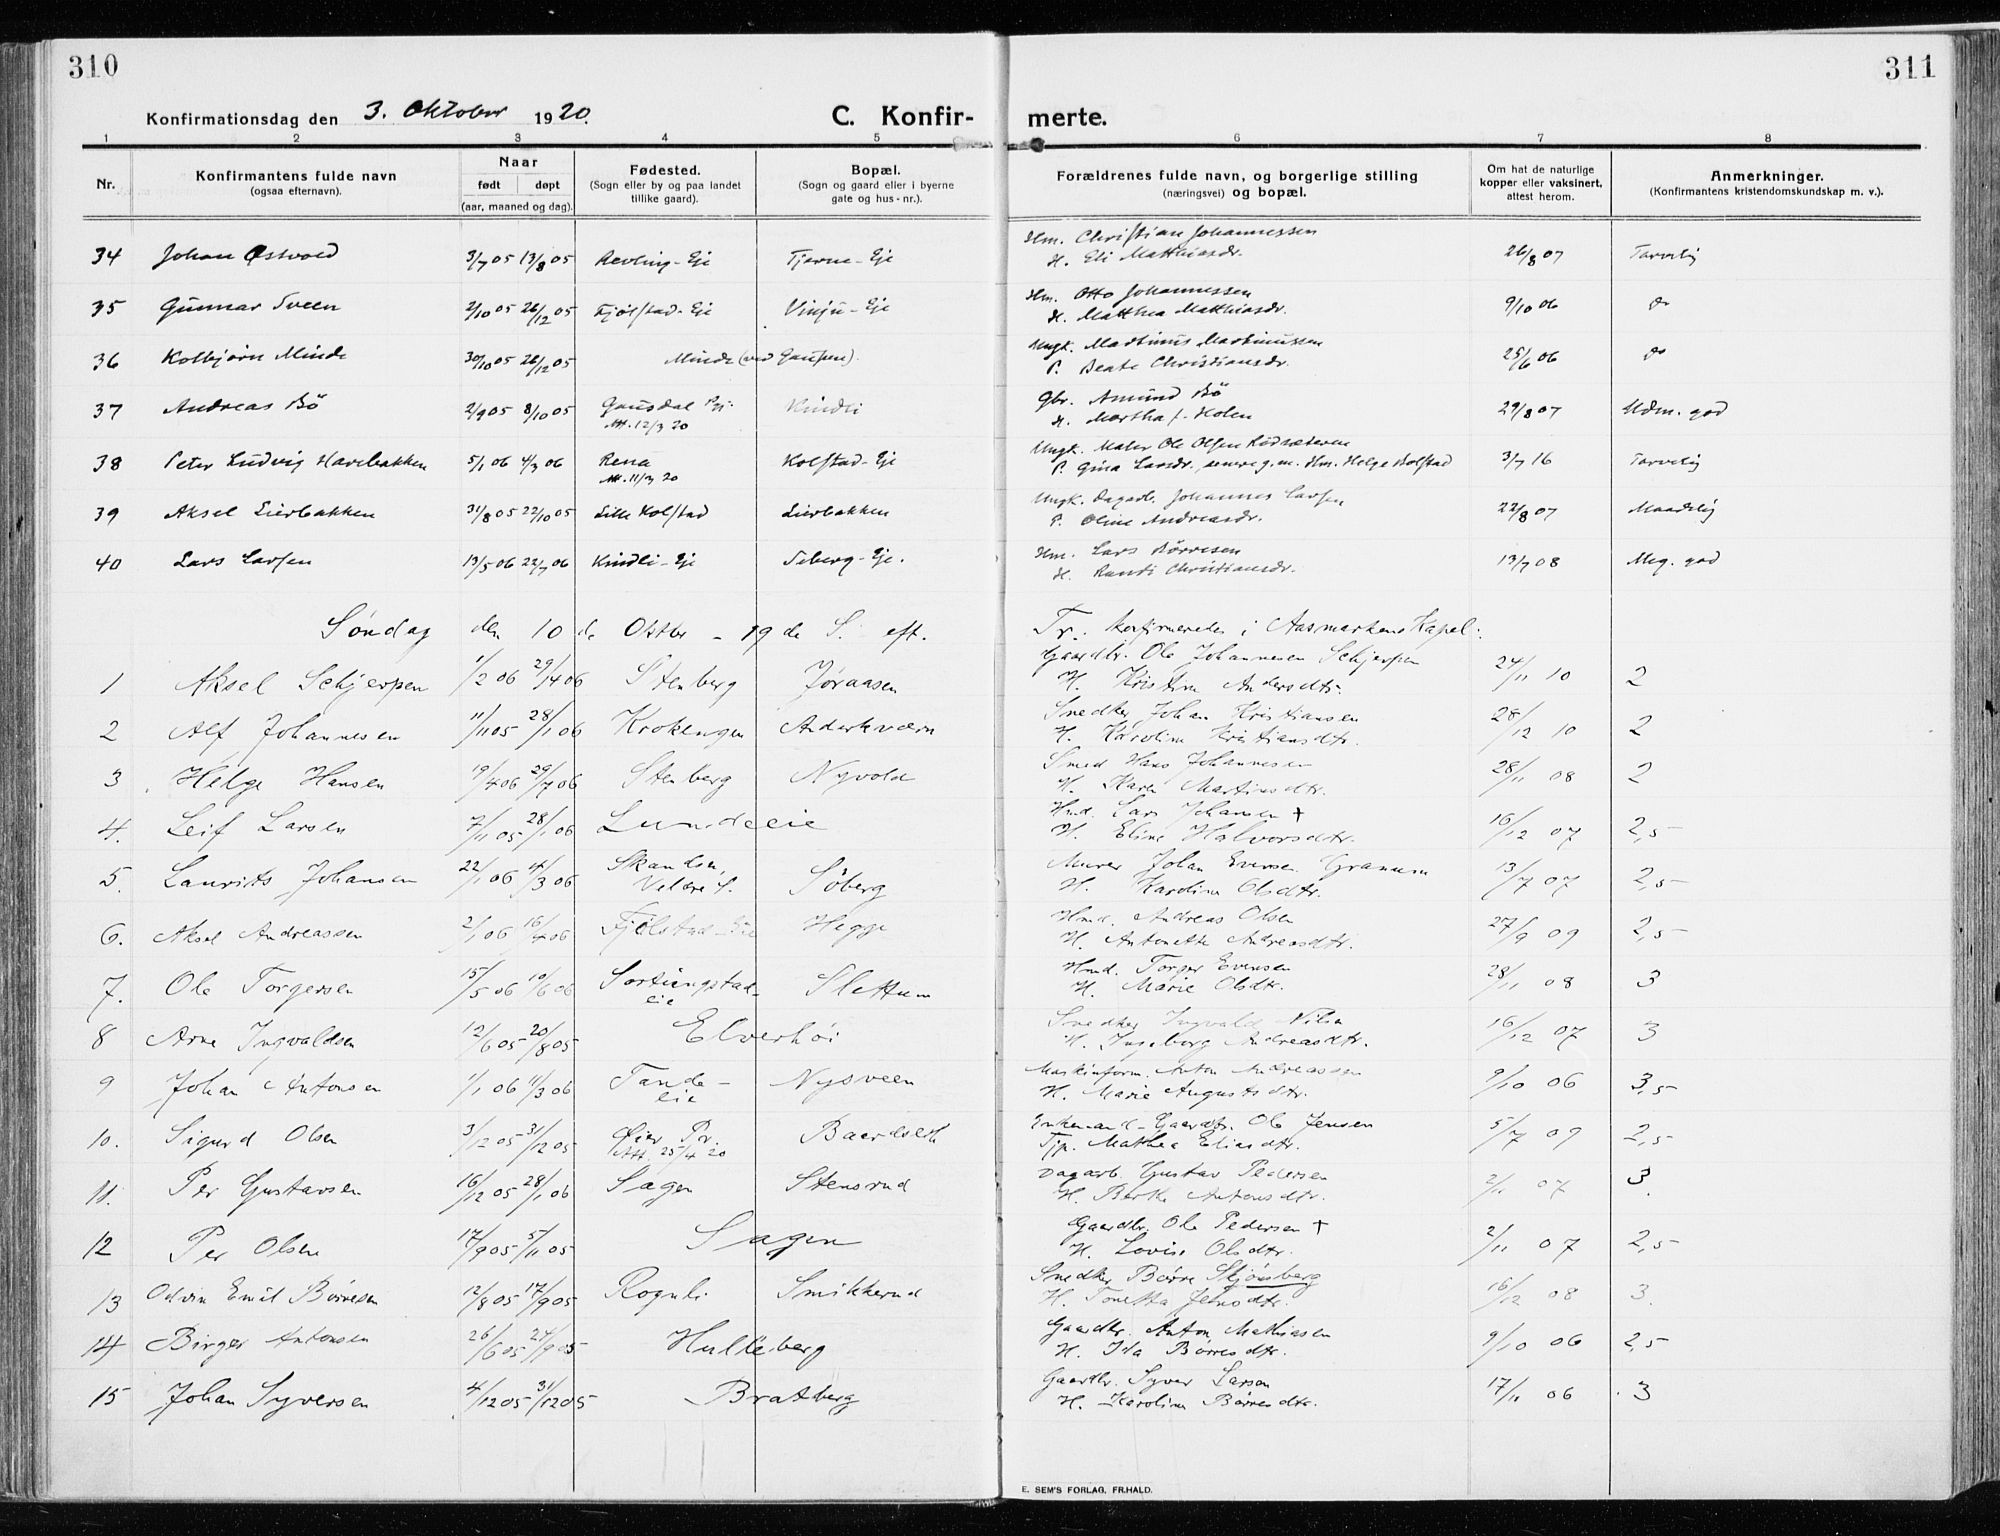 310
311
Konfirmationsdag den 3. Oktober 1920.
C. Konfir-
merte.
1 2 3 4 5 6 7 8
Nr.
Konfirmantens fulde navn
(ogsaa efternavn).
Naar
født døpt
(aar, maaned og dag).
Fødested.
(Sogn eller by og paa landet
tillike gaard).
Bopæl.
(Sogn og gaard eller i byerne
gate og hus-nr.).
Forældrenes fulde navn, og borgerlige stilling
(næringsvei) og bopæl.
Om hat de naturlige
kopper eller vaksinert,
attest herom.
Anmerkninger.
(Konfirmantens kristendomskundskap m. v.).
Hm. Christian Johannessen
34 Johan Østvold 3/7 05 13/8 05 Revling-Eje Tjerne-Eje H. Eli Matthiasdr. 26/8 07 Tarvelig
Hm. Otto Johannessen
35 Gunnar Sveen 2/10 05 26/12 05 Fjølstad-Eje Vinju-Eje H. Matthea Matthiasdr. 9/10 06 do
Ungk. Martinus Martinussen
36 Kolbjørn Minde 30/10 05 26/12 05 Minde (ved Gaupen). P. Beate Christiansdr. 25/6 06 do
Gbr. Amund Bö
37 Andreas Bö 2/9 05 8/10 05 Gausdal Pgj. Kindli H. Martha f. Holen 29/8 07 Udm. god
Att. 12/3 20
Ungk. Maler Ole Olsen Rödsæteren
38 Peter Ludvig Harebakken 5/1 06 4/3 06 Rena Kolstad-Eje P. Gina Larsdr., senere g. m. Hm. Helge Kolstad 3/7 16 Tarvelig
Att. 11/3 20
Ungk. Dagarb. Johannes Larsen
39 Aksel Lierbakken 31/8 05 22/10 05 Lille Kolstad Lierbakken P. Oline Andreasdr. 22/8 07 Maadelig
Hm. Lars Börresen
40 Lars Larsen 13/5 06 22/7 06 Kindli-Eje Seberg-Eje. H. Randi Christiansdr. 13/7 08 Meg. god
Söndag den 10de Oktbr - 19de S. eft. Tr.: Konfirmeredes i Aasmarkens Kapel:
Gaardbr. Ole Johannesen Schjerpen
1 Aksel Schjerpen 1/2 06 29/14 06 Stenberg Jøraasen H. Kristine Andersdtr. 24/11 10 2
Snedker Johan Kristiansen
2 Alf Johannesen 11/11 05 28/1 06 Krokengen Anderkværn H. Karoline Kristiansdtr. 28/12 10 2
Smed Hans Johannesen
3 Helge Hansen 19/4 06 29/7 06 Stenberg Nyvold H. Karen Martinsdtr. 28/11 08 2
Hmd. Lars Johansen +
4. Leif Larsen 7/11 05 28/1 06 Lundeeie H. Eline Halvorsdtr. 16/12 07 2,5
Murer Johan Evensen Granum
5. Laurits Johansen 22/1 06 4/3 06 Skandsen, Veldre S. Söberg H. Karoline Olsdtr. 13/7 07 2,5
Hmd. Andreas Olsen
6. Aksel Andreassen 2/1 06 16/4 06 Fjölstad-Eie Hegge H. Antonette Andreasdtr. 27/9 09 2,5
Hmd. Torger Evensen
7. Ole Torgersen 15/5 06 10/6 06 Sortungstad-eie Slettum H. Marie Olsdtr. 28/11 08 3
Snedker Ingvald Nilsen
8 Arne Ingvaldsen 12/6 05 20/8 05 Elverhöi H. Ingeborg Andreasdtr. 16/12 07 3
Maskinform. Anton Andreassen
9 Johan Antonsen 1/1 06 11/3 06 Tande-eie Nysveen H. Marie Augustsdtr. 9/10 06 3,5
Enkemand-Gaardbr. Ole Jensen
10. Sigurd Olsen 3/12 05 31/12 05 Øier Pr. Baardseth Tjp. Mathea Eliasdtr. 5/7 09 2,5
Att. 25/4 20
Dagarb. Gustav Pedersen
11. Per Gustavsen 16/12 05 28/1 06 Sagen Stensrud H. Berthe Antonsdtr. 2/11 07 3.
Gaardbr. Ole Pedersen +
12 Per Olsen 17/9 05 5/11 05 Sagen H. Lovise Olsdtr. 2/11 07 2,5
Snedker Børre Skjønsberg
13 Odvin Emil Børresen 12/8 05 17/9 05 Rognli Smikkerud H. Tonetta Jensdtr. 16/12 08 3.
Gaardbr. Anton Mathiasen
14 Birger Antonsen 26/6 05 24/9 05 Hulleberg H. Ida Børresdtr. 9/10 06 2,5
Gaardbr. Syver Larsen
15 Johan Syversen 4/12 05 31/12 05 Bratberg H. Karoline Børresdtr. 17/11 06 3
E. SEM'S FORLAG, FR.HALD.